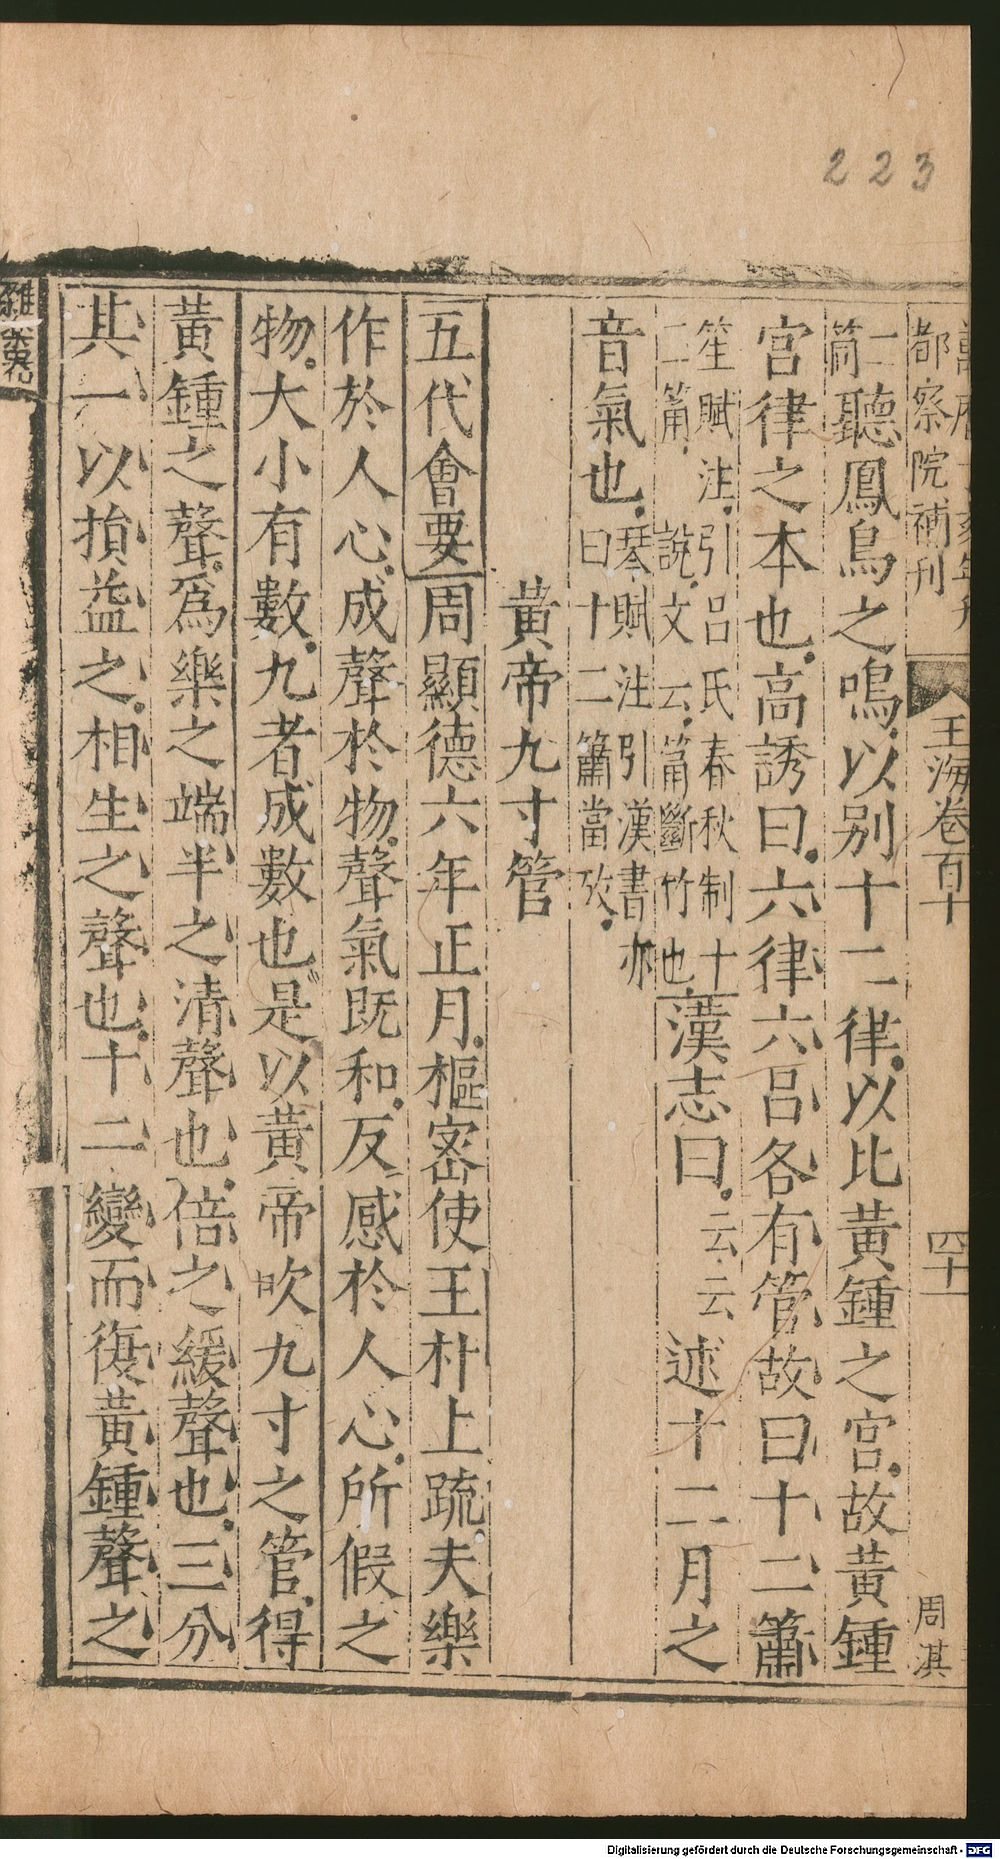 223
都察院補刊
玉海卷百十
四十
周淇
二筒聽鳳鳥之鳴以别十二律以比黃鍾之宮故黃鍾
宮律之本也高誘曰六律六呂各有管故曰十二簫
笙賦注引呂氏春秋制十
二筩說文云筩斷竹也
漢志曰云云述十二月之
音氣也
琴賦注引漢書亦
曰十二簫當攷
黃帝九寸管
五代會要周顯德六年正月樞密使王朴上疏夫樂
作於人心成聲於物聲氣既和反感於人心所假之
物大小有數九者成數也是以黃帝吹九寸之管得
黃鍾之聲爲樂之端半之清聲也倍之緩聲也三分
其一以損益之相生之聲也十二變而復黃鍾聲之
Digitalisierung gefördert durch die Deutsche Forschungsgemeinschaft - DFG